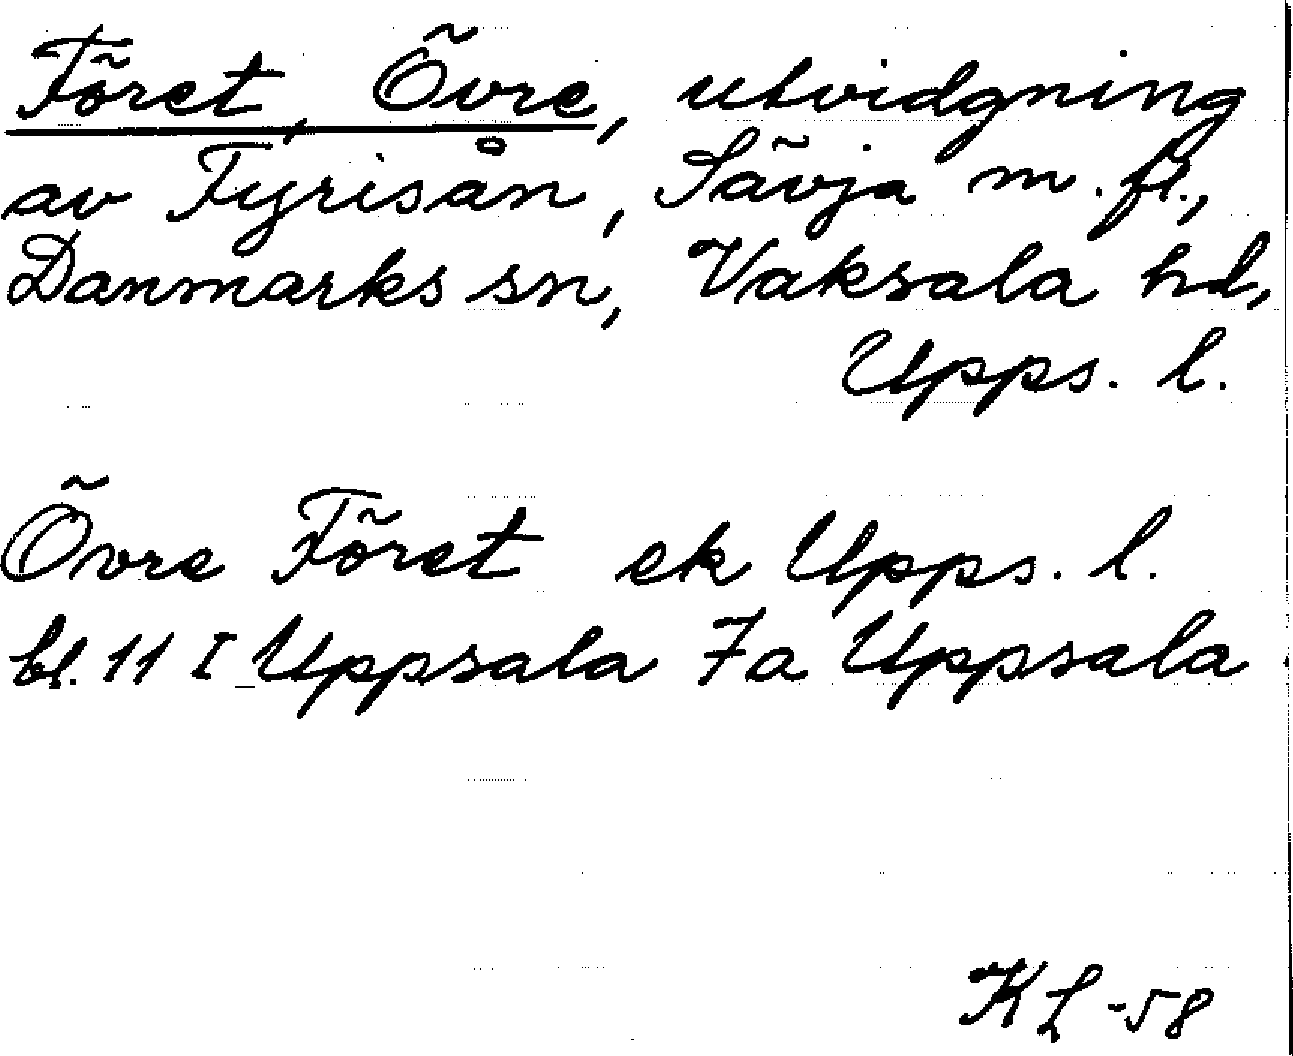 Föret, Övre, utvidgning
av Fyrisån, Sävja m. fl.,
Danmarks sn, Vaksala hd,
Upps. l.
Övre Föret ek Upps. l.
bl. 11 I Uppsala 7a Uppsala
KL -58